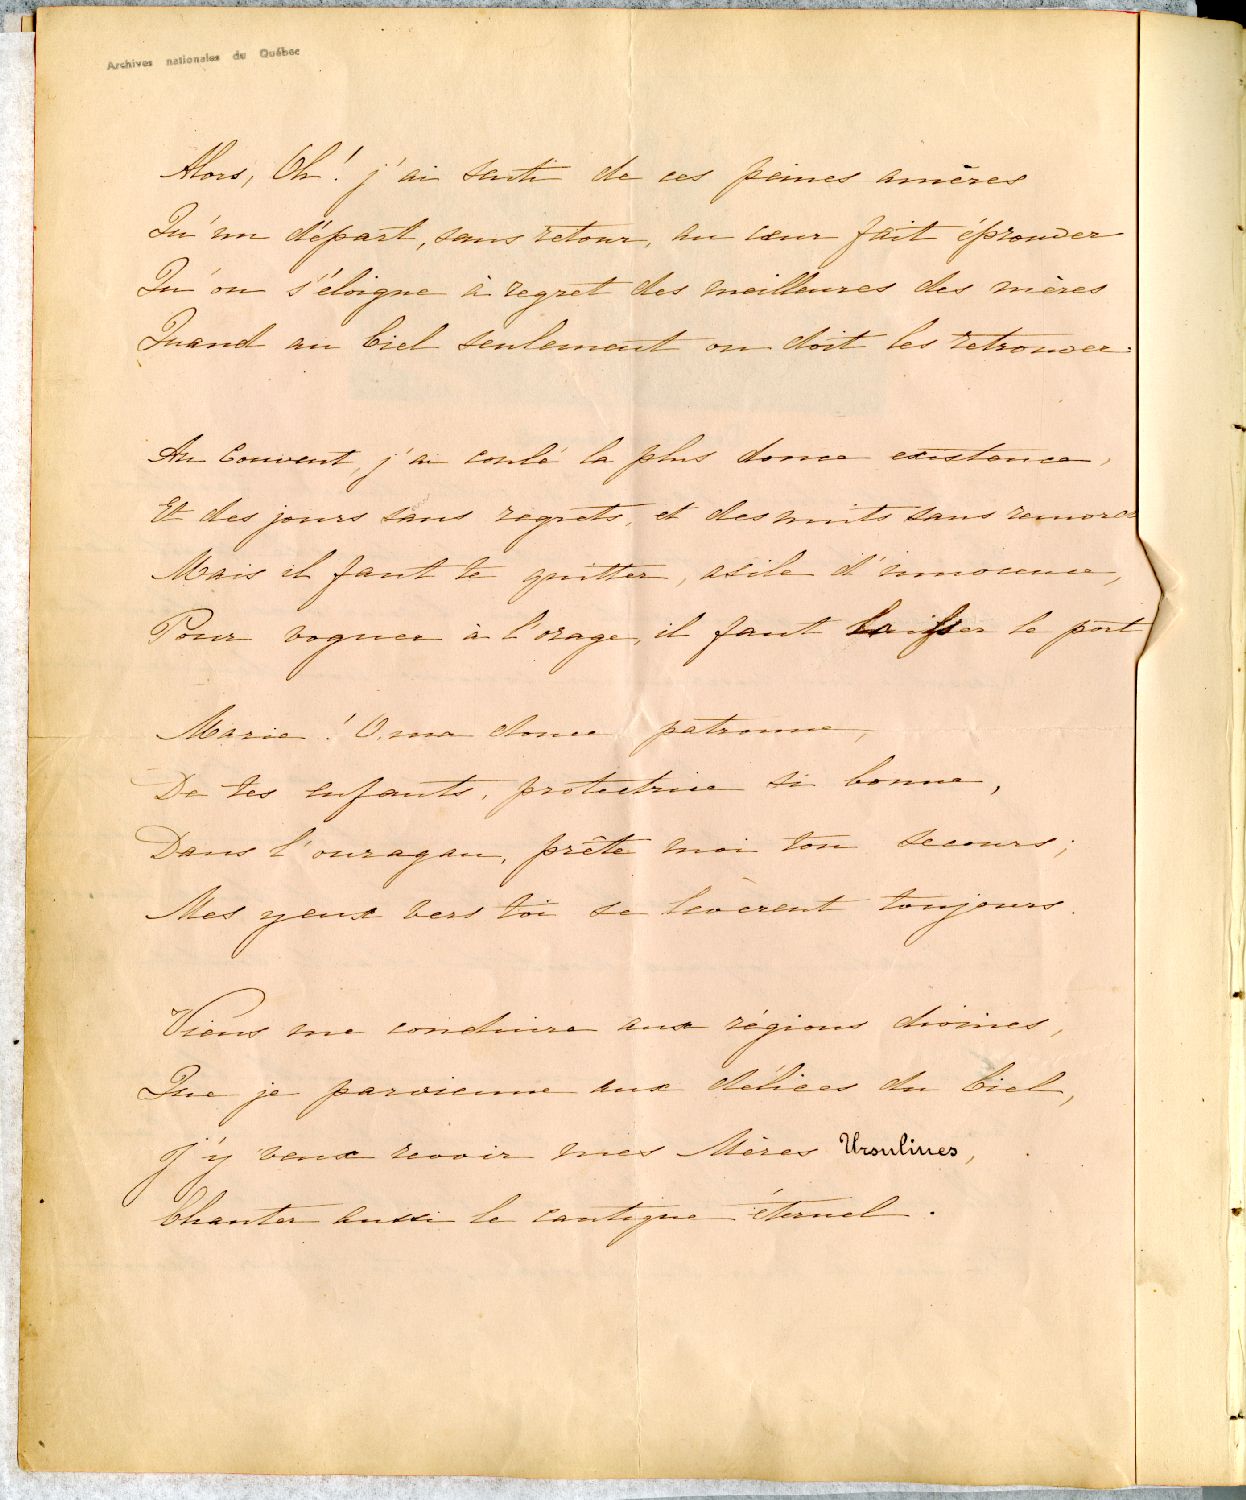 Archives nationales du Québec
Alors, Oh! j'ai senti de ces peines amères
Qu'un départ, sans retour, au cœur fait éprouver
Qu'on s'éloigne à regret des meilleures des mères
Quand au Ciel seulement on doit les retrouver.
Au Couvent, j'ai coulé la plus douce existence,
Et des jours sans regrets, et des nuits sans remords
Mais il faut te quitter, asile d'innocence,
Pour voguer à l'orage, il faut laisser le port
Marie! O, ma douce patronne,
De tes enfants, protectrice si bonne,
Dans l'ouragan, prête moi ton secours;
Mes yeux vers toi se lèverent toujours.
Viens me conduire aux régions divines,
Que je parvienne aux délices du Ciel,
J'y veux revoir mes Mères Ursulines,
Chanter aussi le cantique éternel.